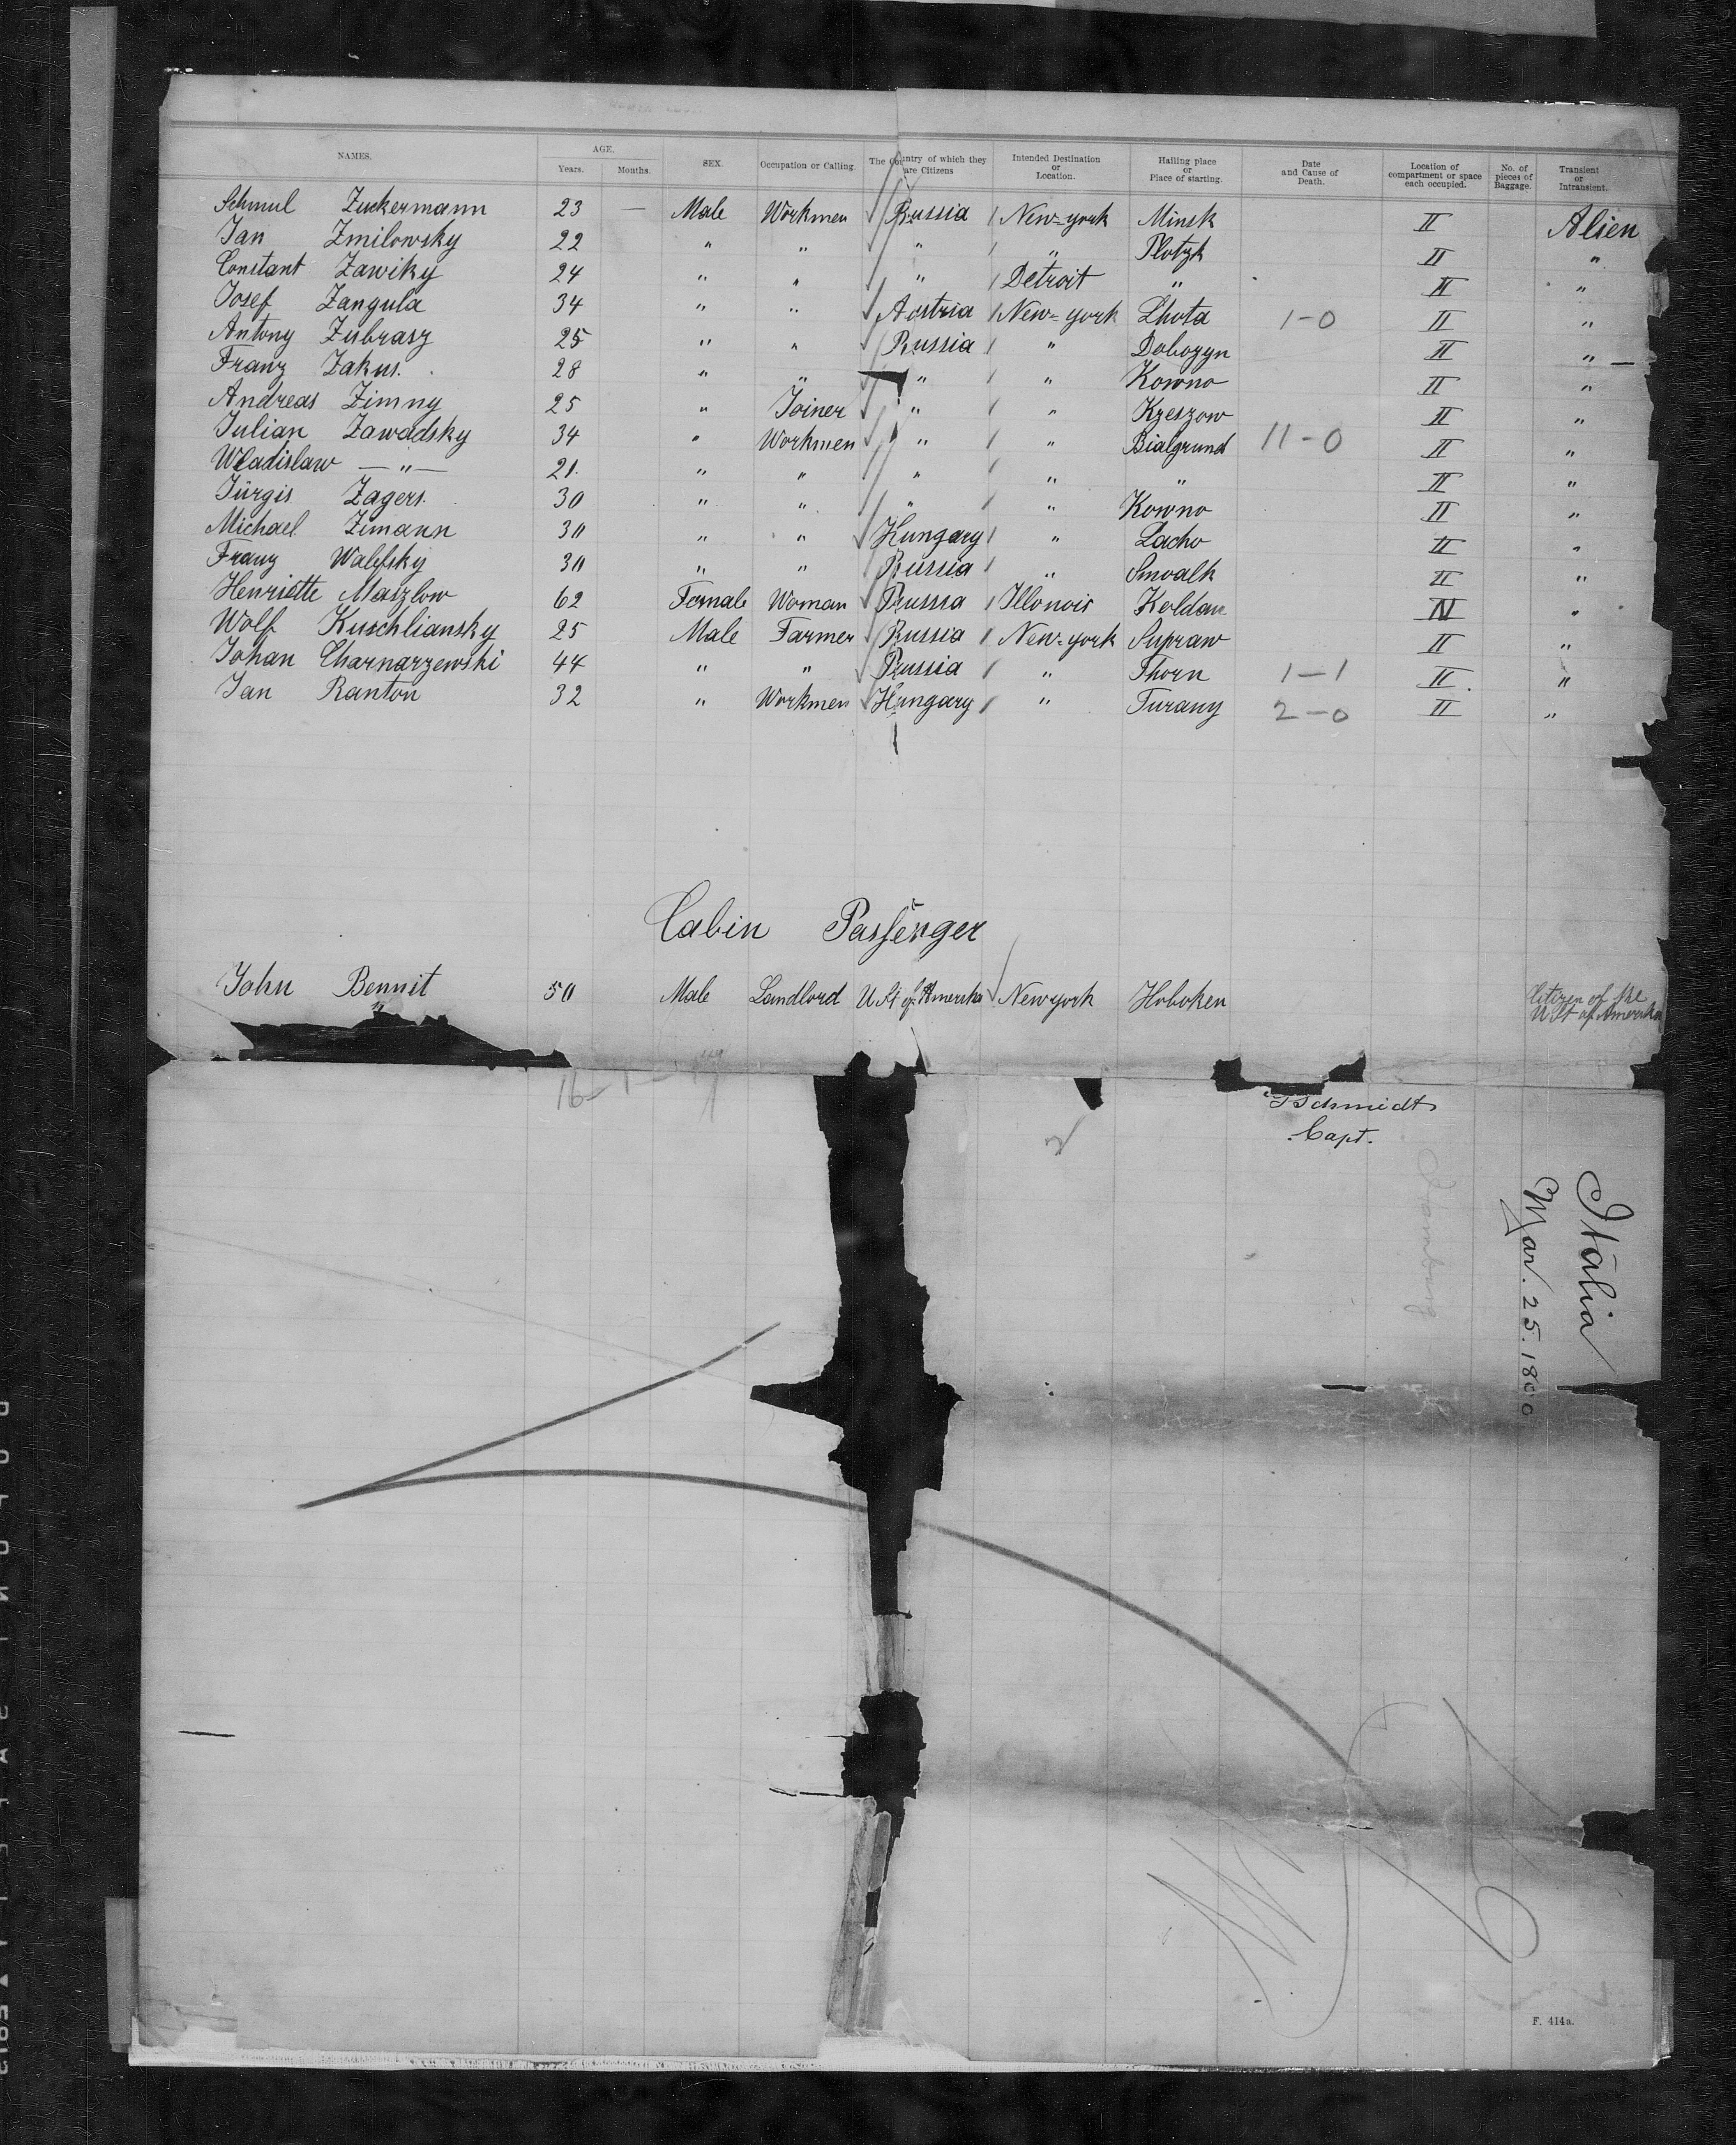 NAMES. AGE. Years. Months. SEX. Occupation or Calling. The Country of which they are Citizens Intended Destination or Location. Hailing place or Place of starting. Date and Cause of Death. Location of compartment or space each occupied. No. of pieces of Baggage. Transient or Intransient.
Schmul Zuckermann 23 — Male Workmen Russia New-york Minsk II Alien
Jan Zmilowsky 22 " " " " Plotzk II "
Constant Zawiky 24 " " " Detroit " II "
Josef Zangula 34 " " Austria New-york Lhota 1-0 II "
Antony Zubrasz 25 " " Russia " Dobozyn II "
Franz Zakus. 28 " " " " Kowno II "
Andreas Zimny 25 " Joiner " " Kzeszow II "
Julian Zawadsky 34 " Workmen " " Bialgrund 11-0 II "
Wladislaw — " — 21. " " " " " II "
Jürgis Zagers. 30 " " " " Kowno II "
Michael Zimann 30 " " Hungary " Lacho II "
Franz Walefsky 30 " " Russia " Suwalk II "
Henriette Matzlow 62 Female Woman Prussia Illonois Koldau IV "
Wolf Kuschliansky 25 Male Farmer Russia New-york Supraw II "
Johan Charnarzewski 44 " " Prussia " Thorn 1-1 II "
Jan Ranton 32 " Workmen Hungary " Turany 2-0 II "
Cabin Passenger
John Bennit 50 Male Landlord U St of Amerika New york Hoboken Citizen of the U St of Amerika
16-1-
Schmidt
Capt.
Hamburg
Italia
Mar. 25. 1890
F. 414a.